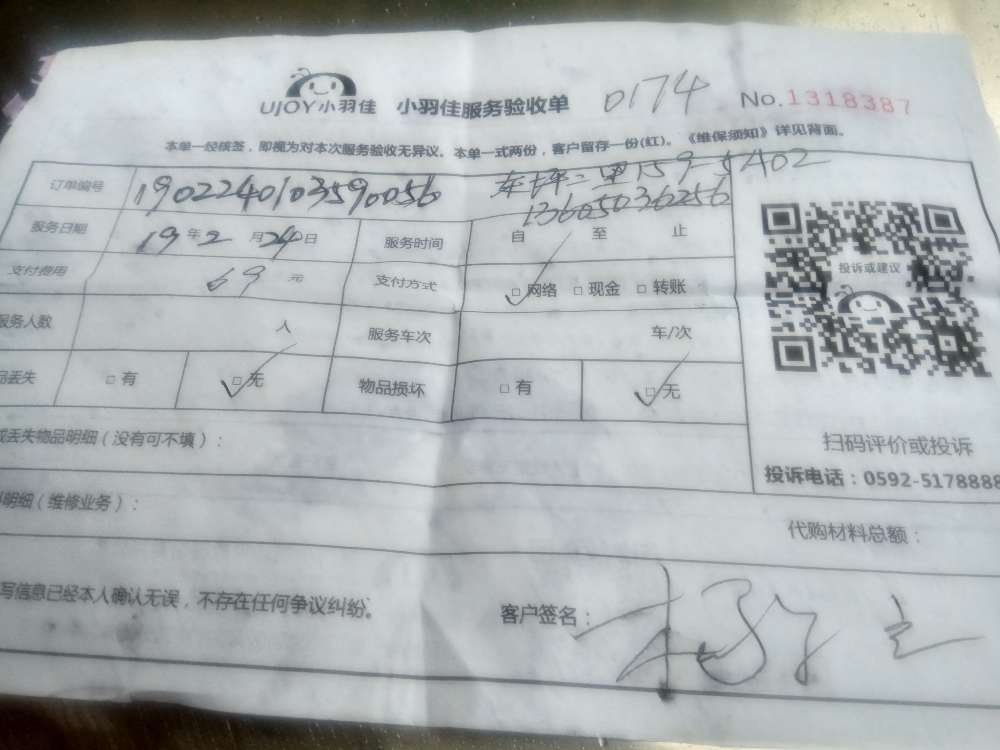 UJOY小羽佳 小羽佳服务验收单 0174 No.1318387
本单一经核签，即视为对本次服务验收无异议。本单一式两份，客户留存一份(红)。《维保须知》详见背面。
订单编号 1902240103590056 东坪二里159-5402
13605036256
服务日期 19年2月24日 服务时间 自 至 止
支付费用 69元 支付方式 □网络 □现金 □转账
服务人数 人 服务车次 车/次
品丢失 □有 □无 物品损坏 □有 □无
或丢失物品明细（没有可不填）：
明细（维修业务）：
代购材料总额：
写信息已经本人确认无误，不存在任何争议纠纷。 客户签名：
投诉或建议
扫码评价或投诉
投诉电话：0592-5178888